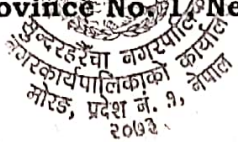 ovince No. 1, Ne
सुन्दरहरैंचा नगरपालिका
नगरकार्यपालिकाको कार्यालय
मोरङ, प्रदेश नं. १, नेपाल
२०७३